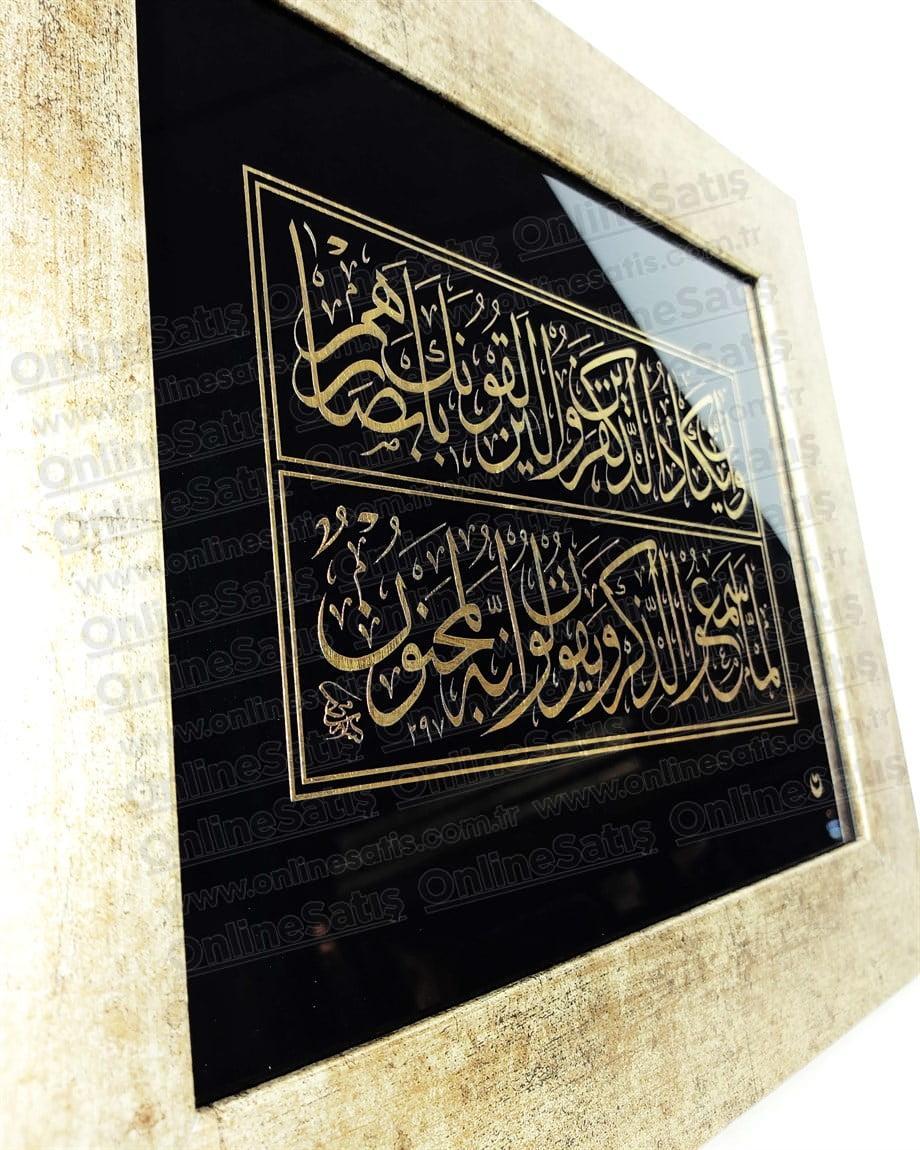 وَاِنْ يَكَادُ الَّذينَ كَفَرُوا لَيُزْلِقُونَكَ بِاَبْصَارِهِمْ
لَمَّا سَمِعُوا الذِّكْرَ وَيَقُولُونَ اِنَّهُ لَمَجْنُونٌ
٢٩٧
OnlineSatış
www.onlinesatis.com.tr